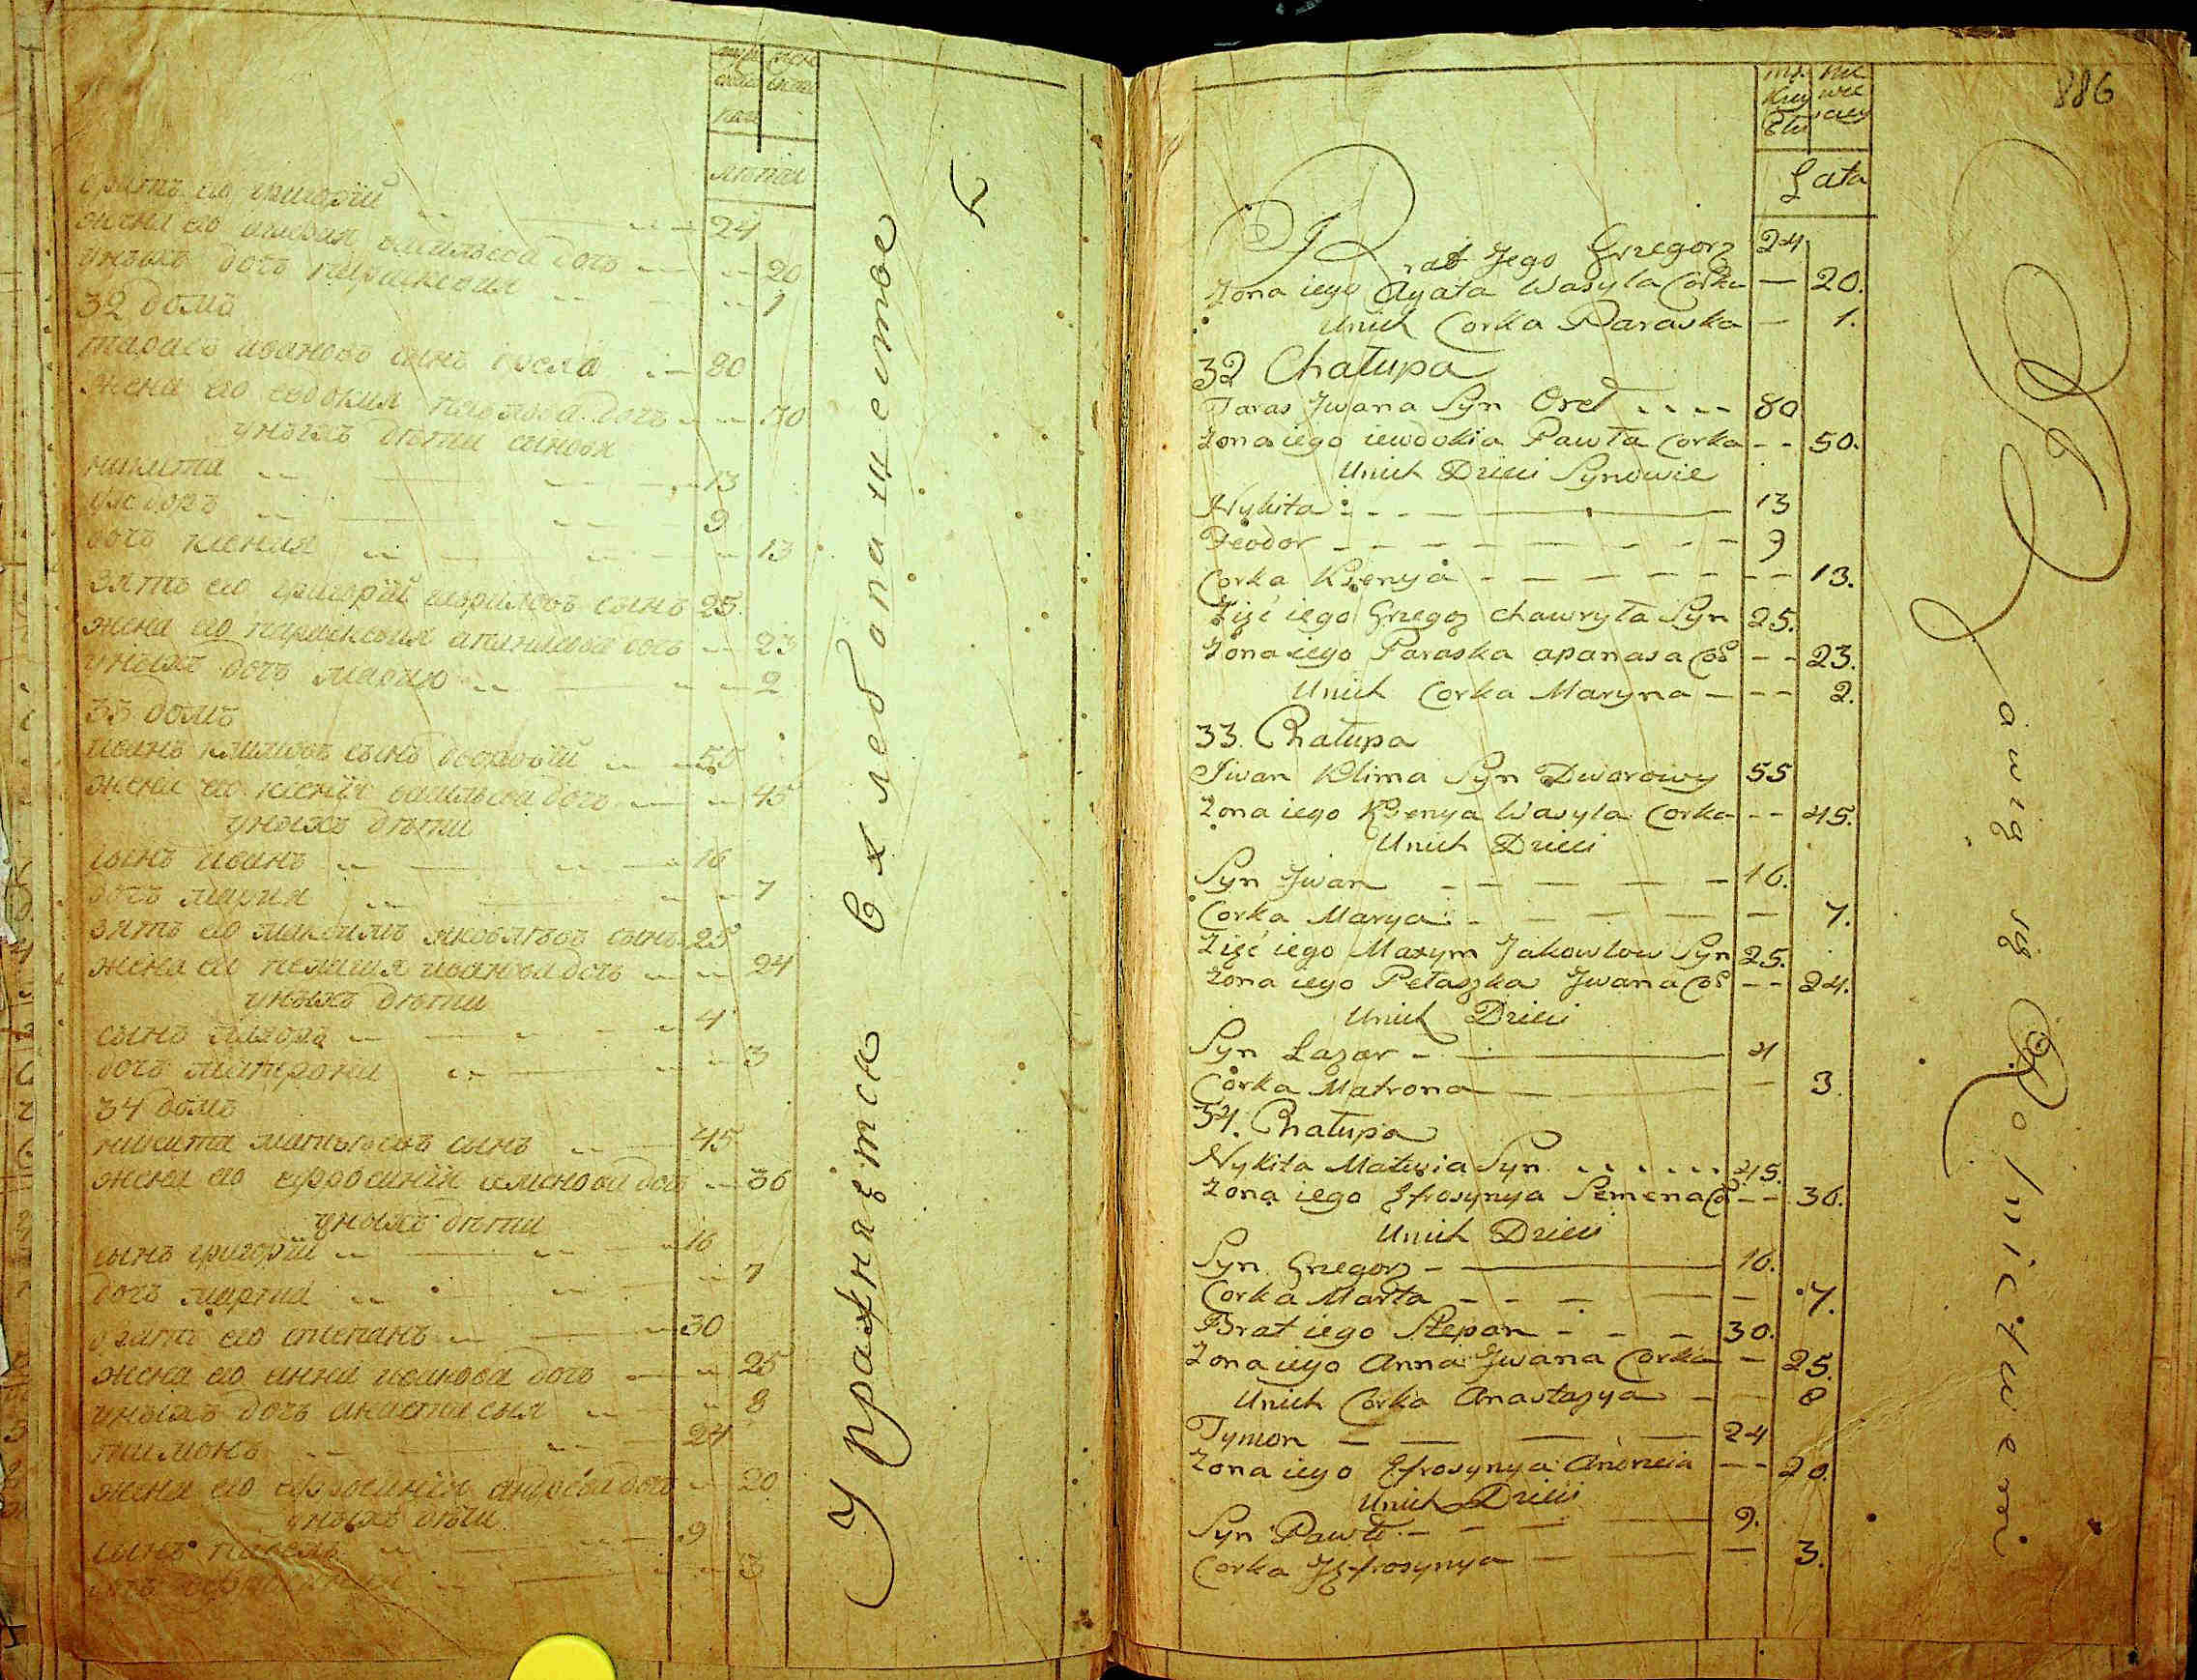 лѣта
братъ его григорій 24
жена его агафия васильева дочь 20
уныхъ дочь параскевия 1
32 домъ
тарасъ ивановъ сынъ 80
жена его евдокия павлова дочь
уныхъ дѣти сыновя
никита 13
9
дочь ксения 13
зять его григорій гавриловъ сынъ 25
жена его параскевия апанасова дочь 23
уныхъ дочь 2
33 домъ
иванъ климовъ сынъ дворовый 55
жена его ксения васильева дочь 45
уныхъ дѣти
сынъ иванъ 16
дочь мария 7
зять его максимъ яковлевъ сынъ 25
жена его пелагия иванова дочь 24
уныхъ дѣти
сынъ 4
дочь матрона 3
34 домъ
никита сынъ 45
жена его ефросиния семенова дочь 36
уныхъ дѣти
сынъ григорій 16
дочь марта 7
братъ его степанъ 30
жена его анна иванова дочь 25
уныхъ дочь анастасия 8
тимонъ 24
жена его ефросиния андреева дочь 20
уныхъ дѣти
сынъ павелъ 9
дочь 3
Упражняетсн вхлебапашестве
886
Lata
Brat Jego Grzegorz 24
Żona iego Agata Wasyla Corka — 20.
Unich Corka Paraska — 1.
32 Chałupa
Taras Jwana Syn Orel 80
Żona iego iewdokia Pawła Corka -- 50.
Unich Dzieci Synowie
Nykita 13
Feodor 9
Corka Ksenya -- 13.
Zięć iego Grzegoz chawryła Syn 25.
Żona iego Paraska apanasa Co -- 23.
Unich Corka Maryna -- 2.
33. Chałupa
Jwan Klima Syn Dworowy 55
Żona iego Ksenya Wasyla Corka -- 45.
Unich Dzieci
Syn Jwan 16.
Corka Marya — 7.
Zięć iego Maxym Jakowlow Syn 25.
Żona iego Pełaszka Jwana Co -- 24.
Unich Dzieci
Syn Łazar 4
Corka Matrona — 3.
34. Chałupa
Nykita Matwia Syn 45.
Żona iego Efrosynya Semena Co -- 36.
Unich Dzieci
Syn Grzegorz 16.
Corka Marta — 7.
Brat iego Stepan 30.
Żona iego Anna Jwana Corka — 25.
Unich Corka Anastazya — 8
Tymon 24
Żona iego Efrosynya Andreia -- 20.
Unich Dzieci
Syn Paweł 9.
Corka Jefrosynya — 3.
Bawią się Rolnictwem